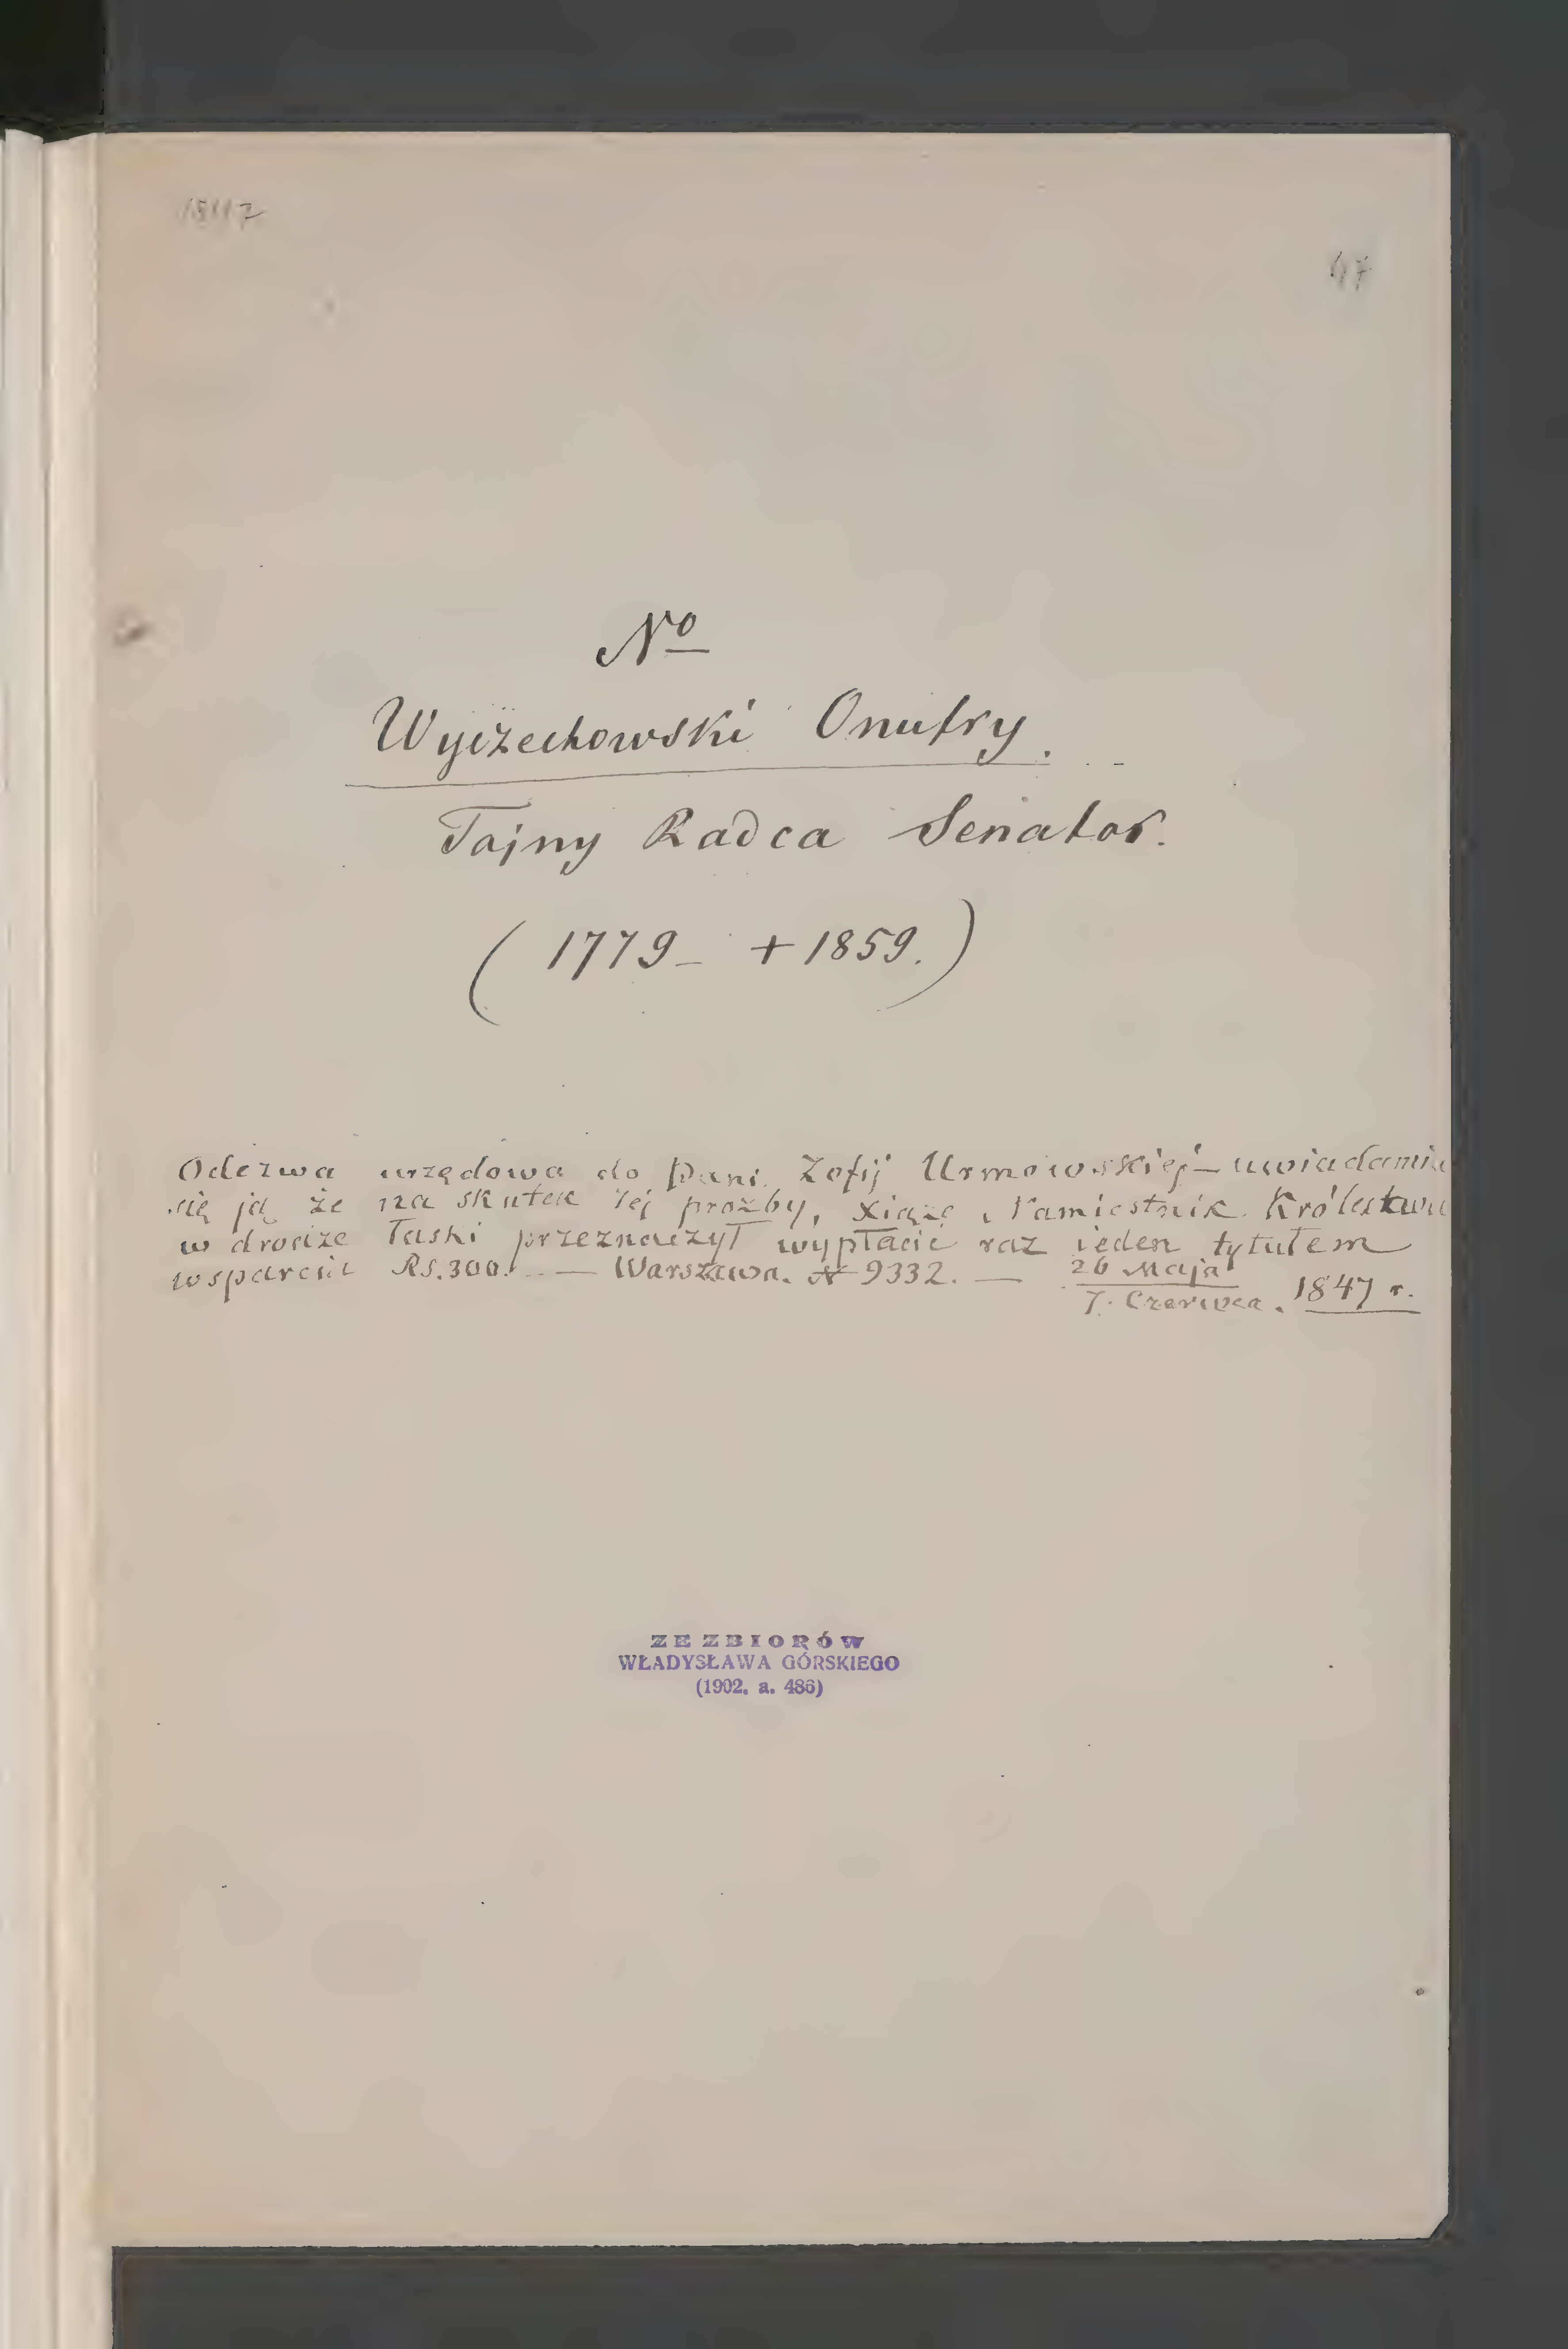 47
№
Wyczechowski Onufry.
Tajny Radca Senator.
(1779 – + 1859.)
Odezwa urzędowa do Pani Zofij Urmowskiéj – uwiadamia
się ją że na skutek Jéj prozby, Xiąże Namiestnik Królestwa
w drodze łaski przeznaczył wypłacić raz ieden tytułem
wsparcia Rs. 300. — Warszawa. N 9332. — 26 Maja
7. Czerwca. 1847 r.
ZE ZBIORÓW
WŁADYSŁAWA GÓRSKIEGO
(1902. a. 486)